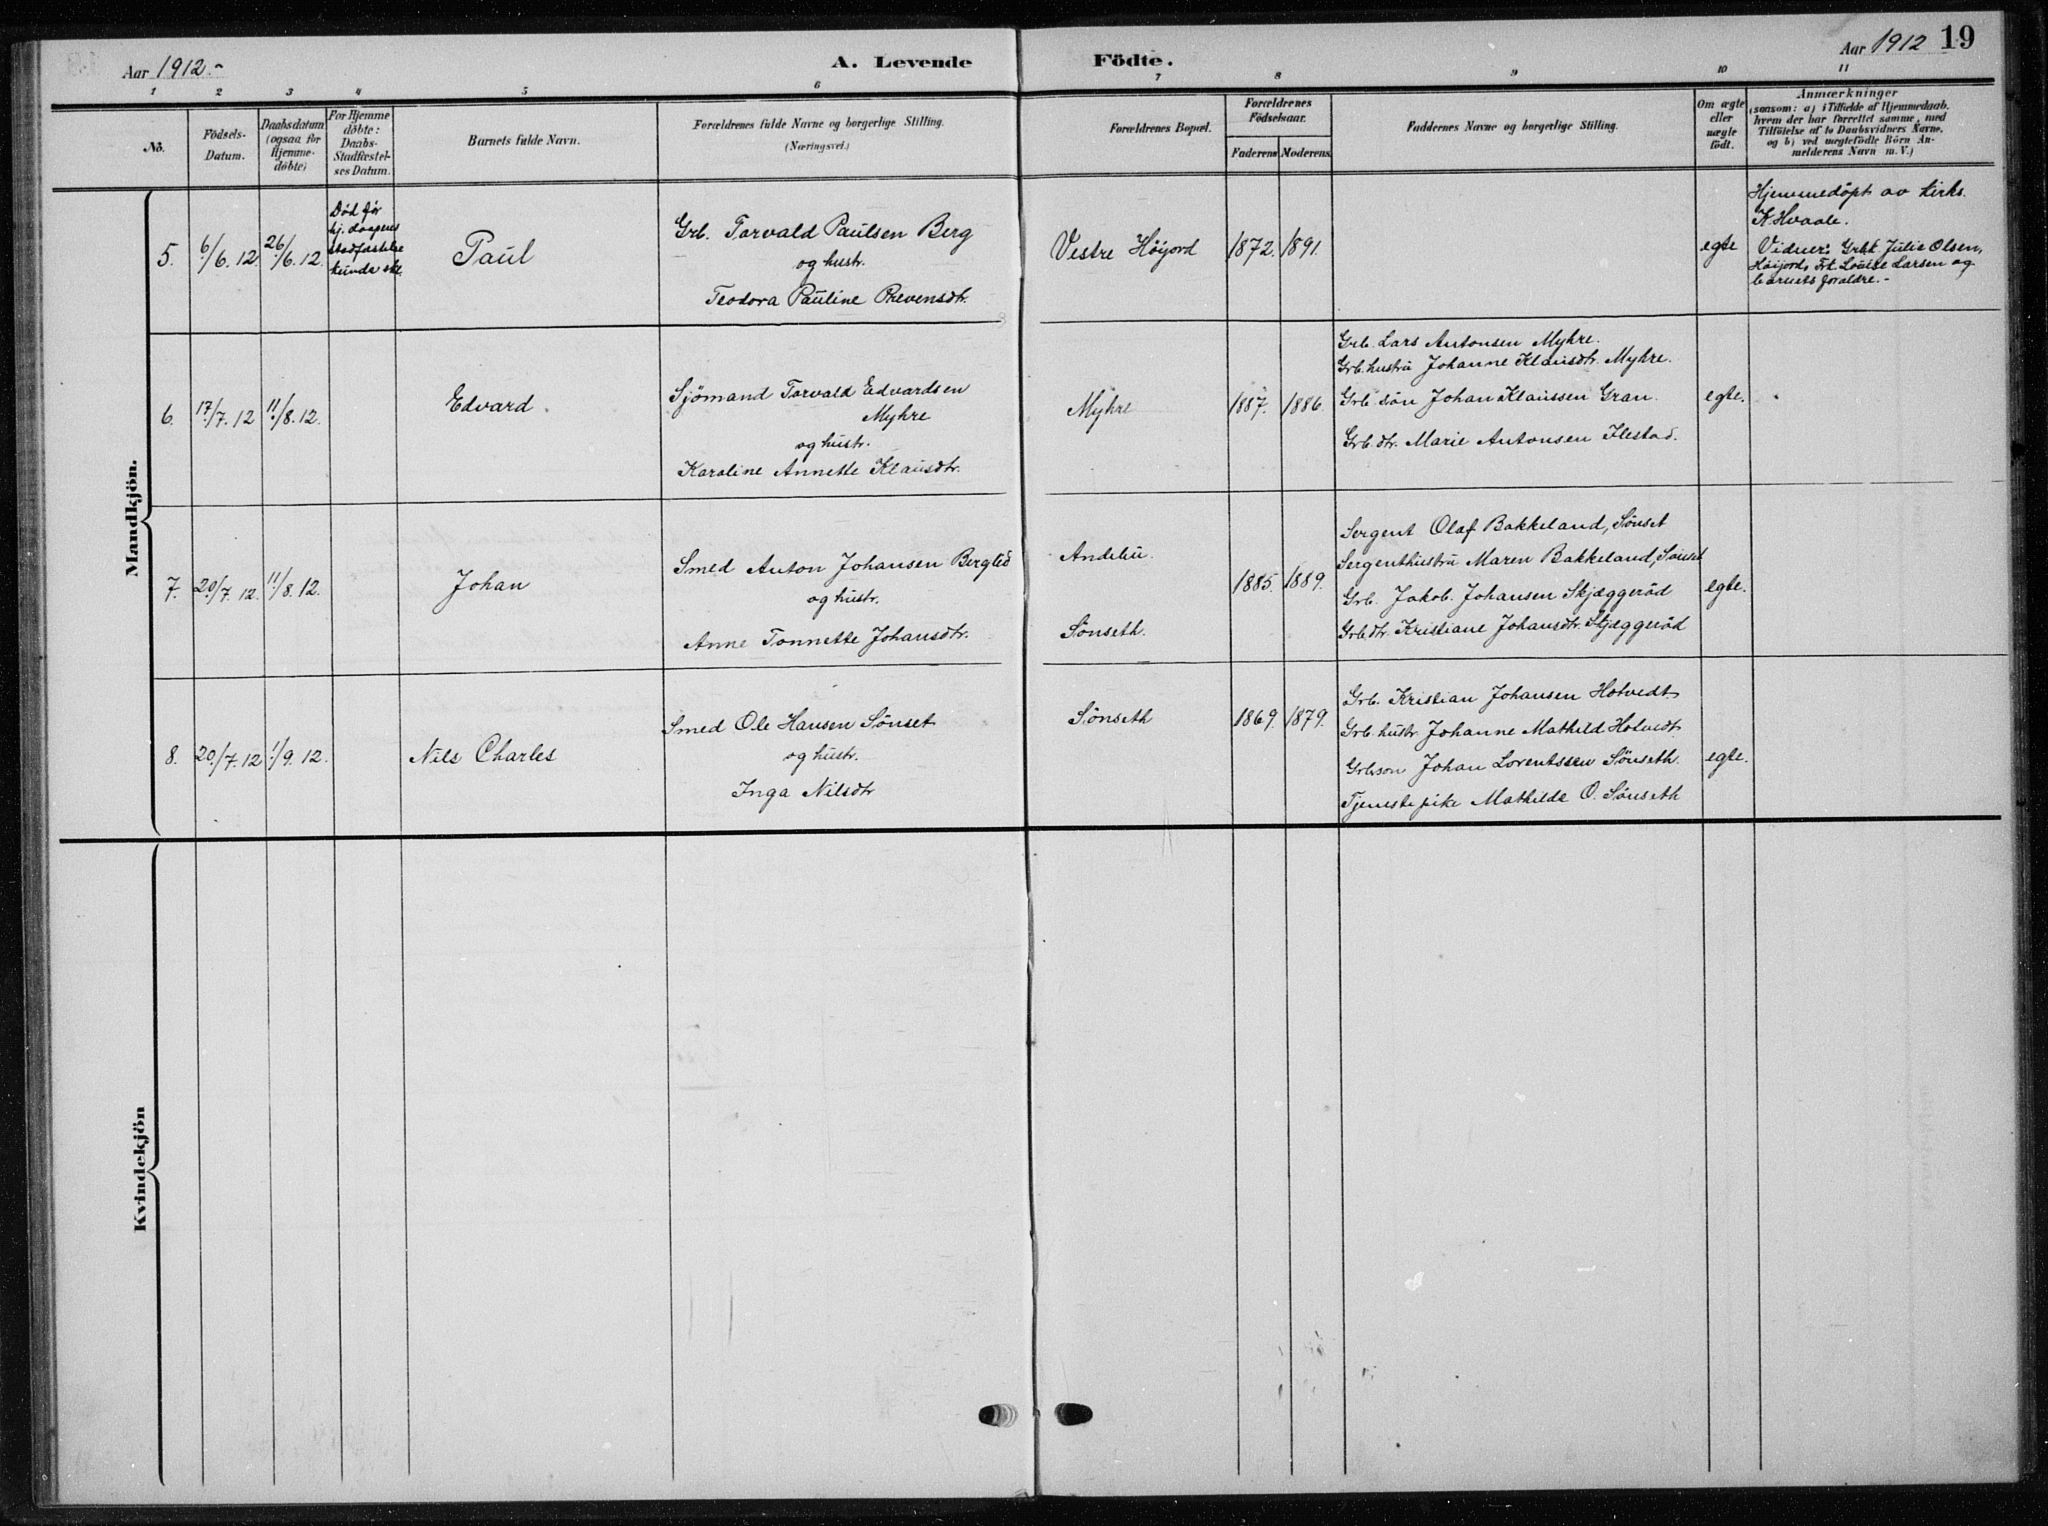 Aar 1912.-
A. Levende Födte.
Aar 1912 19
1 2 3 4 5 6 7 8 9 10 11
No.
Födsels-
Datum.
Daabsdatum
(ogsaa for
Hjemme-
døbte)
For Hjemme
døbte:
Daabs-
Stadfæstel-
ses Datum.
Barnets fulde Navn.
Forældrenes fulde Navne og borgerlige Stilling.
(Næringsvei.)
Forældrenes Bopæl.
Forældrenes
Födselsaar.
Faderens Moderens.
Faddernes Navne og borgerlige Stilling.
Om ægte
eller
uægte
født.
Anmærkninger
(saasom: a) i Tilfælde af Hjemmedaab,
hvem der har forrettet samme, med
Tilföielse af to Daabsvidners Navne,
og b) ved uægtefödte Börn An-
melderens Navn m. V.)
Mandkjön.
5.
6/6. 12.
26/6. 12.
Død før
hj. daapens
stadfæstelse
kunde ske.
Paul
Grb. Torvald Paulsen Berg
og hustr.
Teodora Pauline Prevensdtr.
Vestre Höijord
1872. 1891.
egte
Hjemmedöpt av kirks.
K. Hvaale.
Vidner: Grbk. Julie Olsen,
Höijord, Frk. Louise Larsen og
barnets foraldre.-
6.
17/7. 12
11/8. 12.
Edvard.
Sjömand Torvald Edvardsen
Myhre
og hustr.
Karoline Annette Klausdtr.
Myhre
1887. 1886.
Grb. Lars Antonsen Myhre.
Grb. hustru Johanne Klausdtr. Myhre.
Grb. sön Johan Klaussen Gran.
Grb. dtr. Marie Antonsen Ilestad.
egte.
7.
20/7. 12.
11/8. 12.
Johan
Smed Anton Johansen Bergled
og hustr.
Anne Tonnette Johansdtr.
Andebu.
Sönseth.
1885. 1889.
Sergent Olaf Bakkeland, Sönset
Sergenthustru Maren Bakkeland, Sönset
Grb. Jakob. Johansen Skjæggeröd
Grb. dtr. Kristiane Johansdtr. Skjæggeröd
egte.
8.
20/7. 12
1/9. 12.
Nils Charles
Smed Ole Hansen Sönset
og hustr.
Inga Nilsdtr
Sönseth
1869. 1879.
Grb. Kristian Johansen Hotvedt
Grb. hustr. Johanne Mathild Hotvedt
Grb. son Johan Lorentssen Sönseth.
Tjenestepike Mathilde O. Sönseth
egte.
Kvindekjön